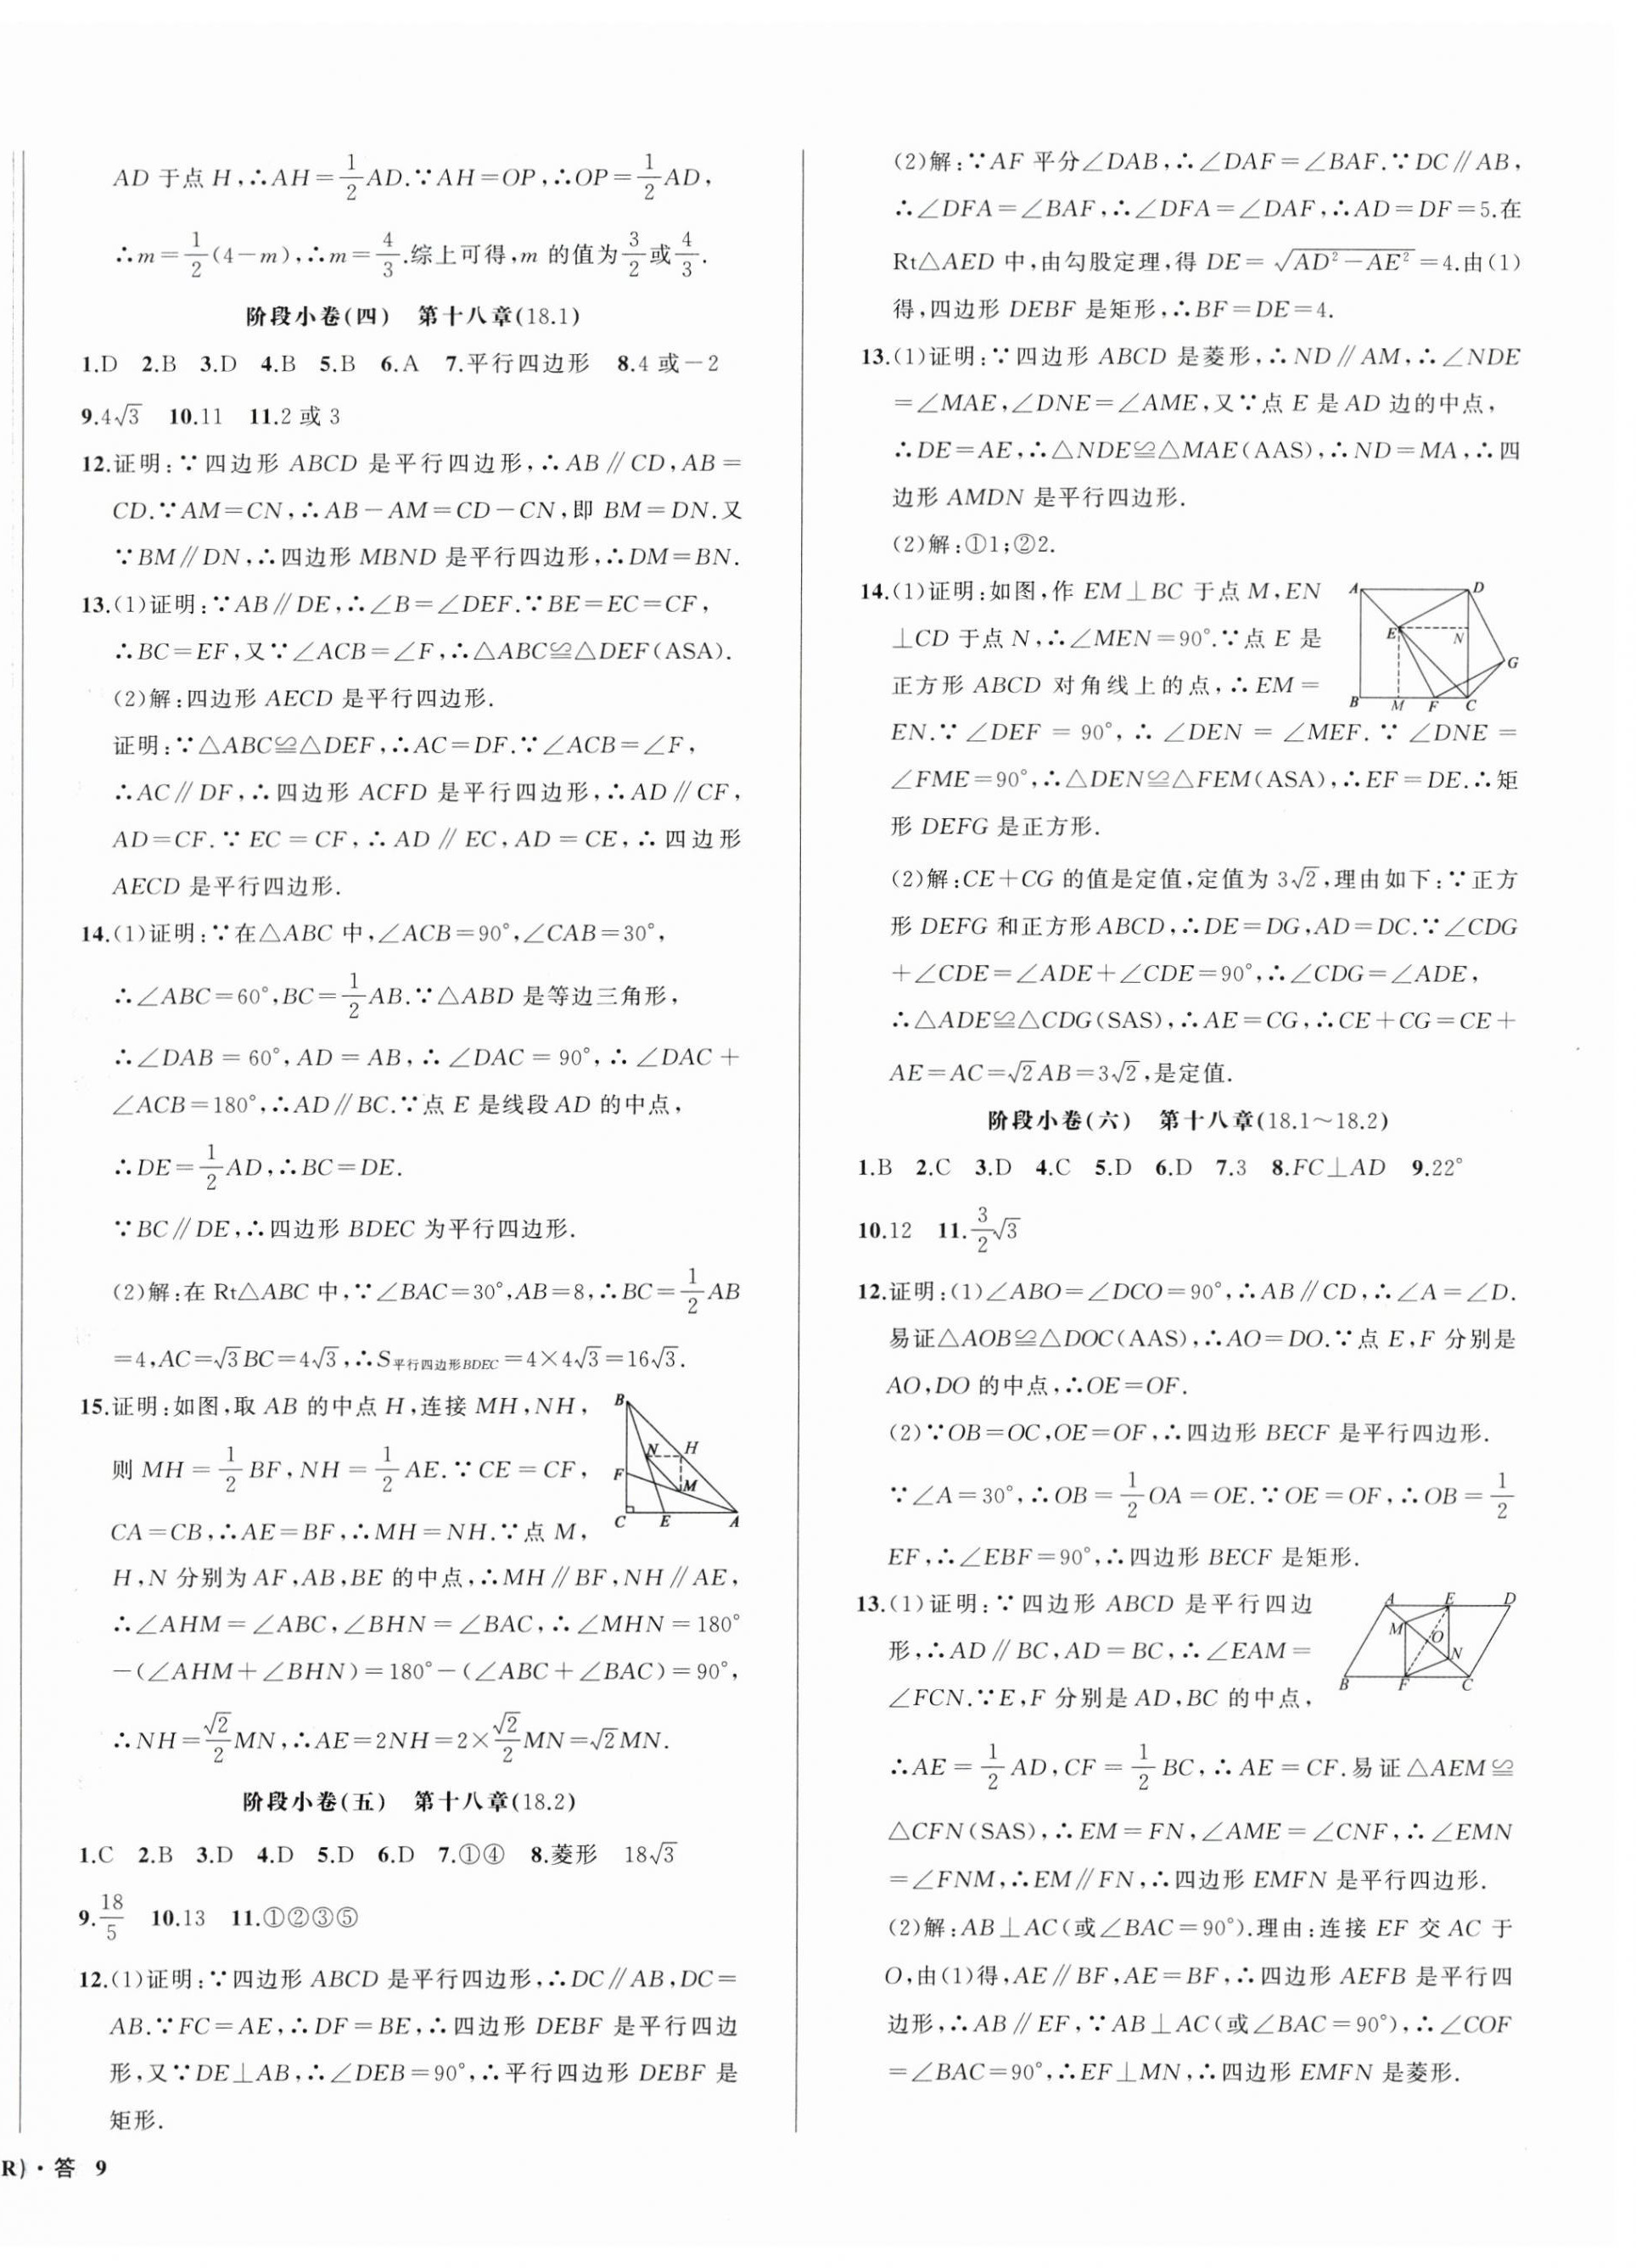 AD 于点 H,∴AH=1/2AD.∵AH=OP,∴OP=1/2AD,
∴m=1/2(4-m),∴m=4/3.综上可得,m 的值为3/2或4/3.
阶段小卷(四) 第十八章(18.1)
1.D 2.B 3.D 4.B 5.B 6.A 7.平行四边形 8.4 或-2
9.4√3 10.11 11.2 或 3
12.证明:∵四边形 ABCD 是平行四边形,∴AB∥CD,AB=
CD.∵AM=CN,∴AB-AM=CD-CN,即 BM=DN.又
∵BM∥DN,∴四边形 MBND 是平行四边形,∴DM=BN.
13.(1)证明:∵AB∥DE,∴∠B=∠DEF.∵BE=EC=CF,
∴BC=EF,又∵∠ACB=∠F,∴△ABC≌△DEF(ASA).
(2)解:四边形 AECD 是平行四边形.
证明:∵△ABC≌△DEF,∴AC=DF.∵∠ACB=∠F,
∴AC∥DF,∴四边形 ACFD 是平行四边形,∴AD∥CF,
AD=CF.∵EC=CF,∴AD∥EC,AD=CE,∴四边形
AECD 是平行四边形.
14.(1)证明:∵在△ABC 中,∠ACB=90°,∠CAB=30°,
∴∠ABC=60°,BC=1/2AB.∵△ABD 是等边三角形,
∴∠DAB=60°,AD=AB,∴∠DAC=90°,∴∠DAC+
∠ACB=180°,∴AD∥BC.∵点 E 是线段 AD 的中点,
∴DE=1/2AD,∴BC=DE.
∵BC∥DE,∴四边形 BDEC 为平行四边形.
(2)解:在 Rt△ABC 中,∵∠BAC=30°,AB=8,∴BC=1/2AB
=4,AC=√3BC=4√3,∴S平行四边形BDEC=4×4√3=16√3.
15.证明:如图,取 AB 的中点 H,连接 MH,NH,
则 MH=1/2BF,NH=1/2AE.∵CE=CF,
CA=CB,∴AE=BF,∴MH=NH.∵点 M,
B
N
H
F
M
C E A
H,N 分别为 AF,AB,BE 的中点,∴MH∥BF,NH∥AE,
∴∠AHM=∠ABC,∠BHN=∠BAC,∴∠MHN=180°
-(∠AHM+∠BHN)=180°-(∠ABC+∠BAC)=90°,
∴NH=√2/2MN,∴AE=2NH=2×√2/2MN=√2MN.
阶段小卷(五) 第十八章(18.2)
1.C 2.B 3.D 4.D 5.D 6.D 7.①④ 8.菱形 18√3
9.18/5 10.13 11.①②③⑤
12.(1)证明:∵四边形 ABCD 是平行四边形,∴DC∥AB,DC=
AB.∵FC=AE,∴DF=BE,∴四边形 DEBF 是平行四边
形,又∵DE⊥AB,∴∠DEB=90°,∴平行四边形 DEBF 是
矩形.
R)·答 9
(2)解:∵AF 平分∠DAB,∴∠DAF=∠BAF.∵DC∥AB,
∴∠DFA=∠BAF,∴∠DFA=∠DAF,∴AD=DF=5.在
Rt△AED 中,由勾股定理,得 DE=√(AD²-AE²)=4.由(1)
得,四边形 DEBF 是矩形,∴BF=DE=4.
13.(1)证明:∵四边形 ABCD 是菱形,∴ND∥AM,∴∠NDE
=∠MAE,∠DNE=∠AME,又∵点 E 是 AD 边的中点,
∴DE=AE,∴△NDE≌△MAE(AAS),∴ND=MA,∴四
边形 AMDN 是平行四边形.
(2)解:①1;②2.
14.(1)证明:如图,作 EM⊥BC 于点 M,EN
⊥CD 于点 N,∴∠MEN=90°.∵点 E 是
正方形 ABCD 对角线上的点,∴EM=
A D
E N
G
B M F C
EN.∵∠DEF=90°,∴∠DEN=∠MEF.∵∠DNE=
∠FME=90°,∴△DEN≌△FEM(ASA),∴EF=DE.∴矩
形 DEFG 是正方形.
(2)解:CE+CG 的值是定值,定值为 3√2,理由如下:∵正方
形 DEFG 和正方形 ABCD,∴DE=DG,AD=DC.∵∠CDG
+∠CDE=∠ADE+∠CDE=90°,∴∠CDG=∠ADE,
∴△ADE≌△CDG(SAS),∴AE=CG,∴CE+CG=CE+
AE=AC=√2AB=3√2,是定值.
阶段小卷(六) 第十八章(18.1~18.2)
1.B 2.C 3.D 4.C 5.D 6.D 7.3 8.FC⊥AD 9.22°
10.12 11.3/2√3
12.证明:(1)∠ABO=∠DCO=90°,∴AB∥CD,∴∠A=∠D.
易证△AOB≌△DOC(AAS),∴AO=DO.∵点 E,F 分别是
AO,DO 的中点,∴OE=OF.
(2)∵OB=OC,OE=OF,∴四边形 BECF 是平行四边形.
∵∠A=30°,∴OB=1/2OA=OE.∵OE=OF,∴OB=1/2
EF,∴∠EBF=90°,∴四边形 BECF 是矩形.
13.(1)证明:∵四边形 ABCD 是平行四边
形,∴AD∥BC,AD=BC,∴∠EAM=
∠FCN.∵E,F 分别是 AD,BC 的中点,
A E D
M O
N
B F C
∴AE=1/2AD,CF=1/2BC,∴AE=CF.易证△AEM≌
△CFN(SAS),∴EM=FN,∠AME=∠CNF,∴∠EMN
=∠FNM,∴EM∥FN,∴四边形 EMFN 是平行四边形.
(2)解:AB⊥AC(或∠BAC=90°).理由:连接 EF 交 AC 于
O,由(1)得,AE∥BF,AE=BF,∴四边形 AEFB 是平行四
边形,∴AB∥EF,∵AB⊥AC(或∠BAC=90°),∴∠COF
=∠BAC=90°,∴EF⊥MN,∴四边形 EMFN 是菱形.